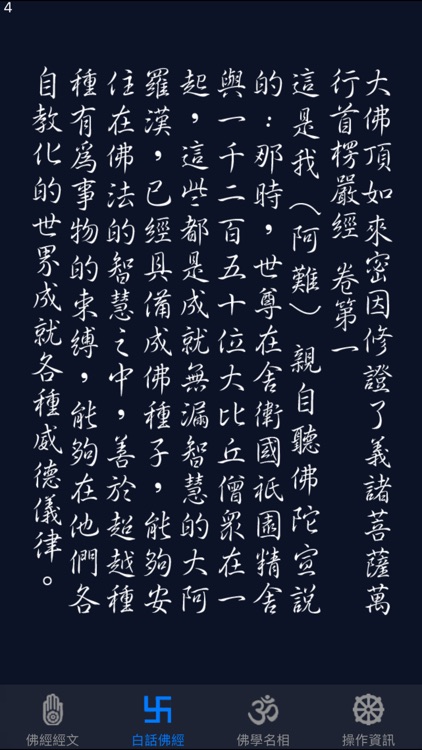 4
大佛頂如來密因修證了義諸菩薩萬
行首楞嚴經 卷第一
這是我（阿難）親自聽佛陀宣說
的：那時，世尊在舍衛國祇園精舍
與一千二百五十位大比丘僧眾在一
起，這些都是成就無漏智慧的大阿
羅漢，已經具備成佛種子，能夠安
住在佛法的智慧之中，善於超越種
種有為事物的束縛，能夠在他們各
自教化的世界成就各種威德儀律。
佛經經文
白話佛經
佛學名相
操作資訊